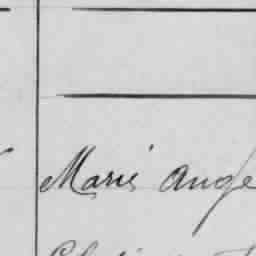 Marie Ange